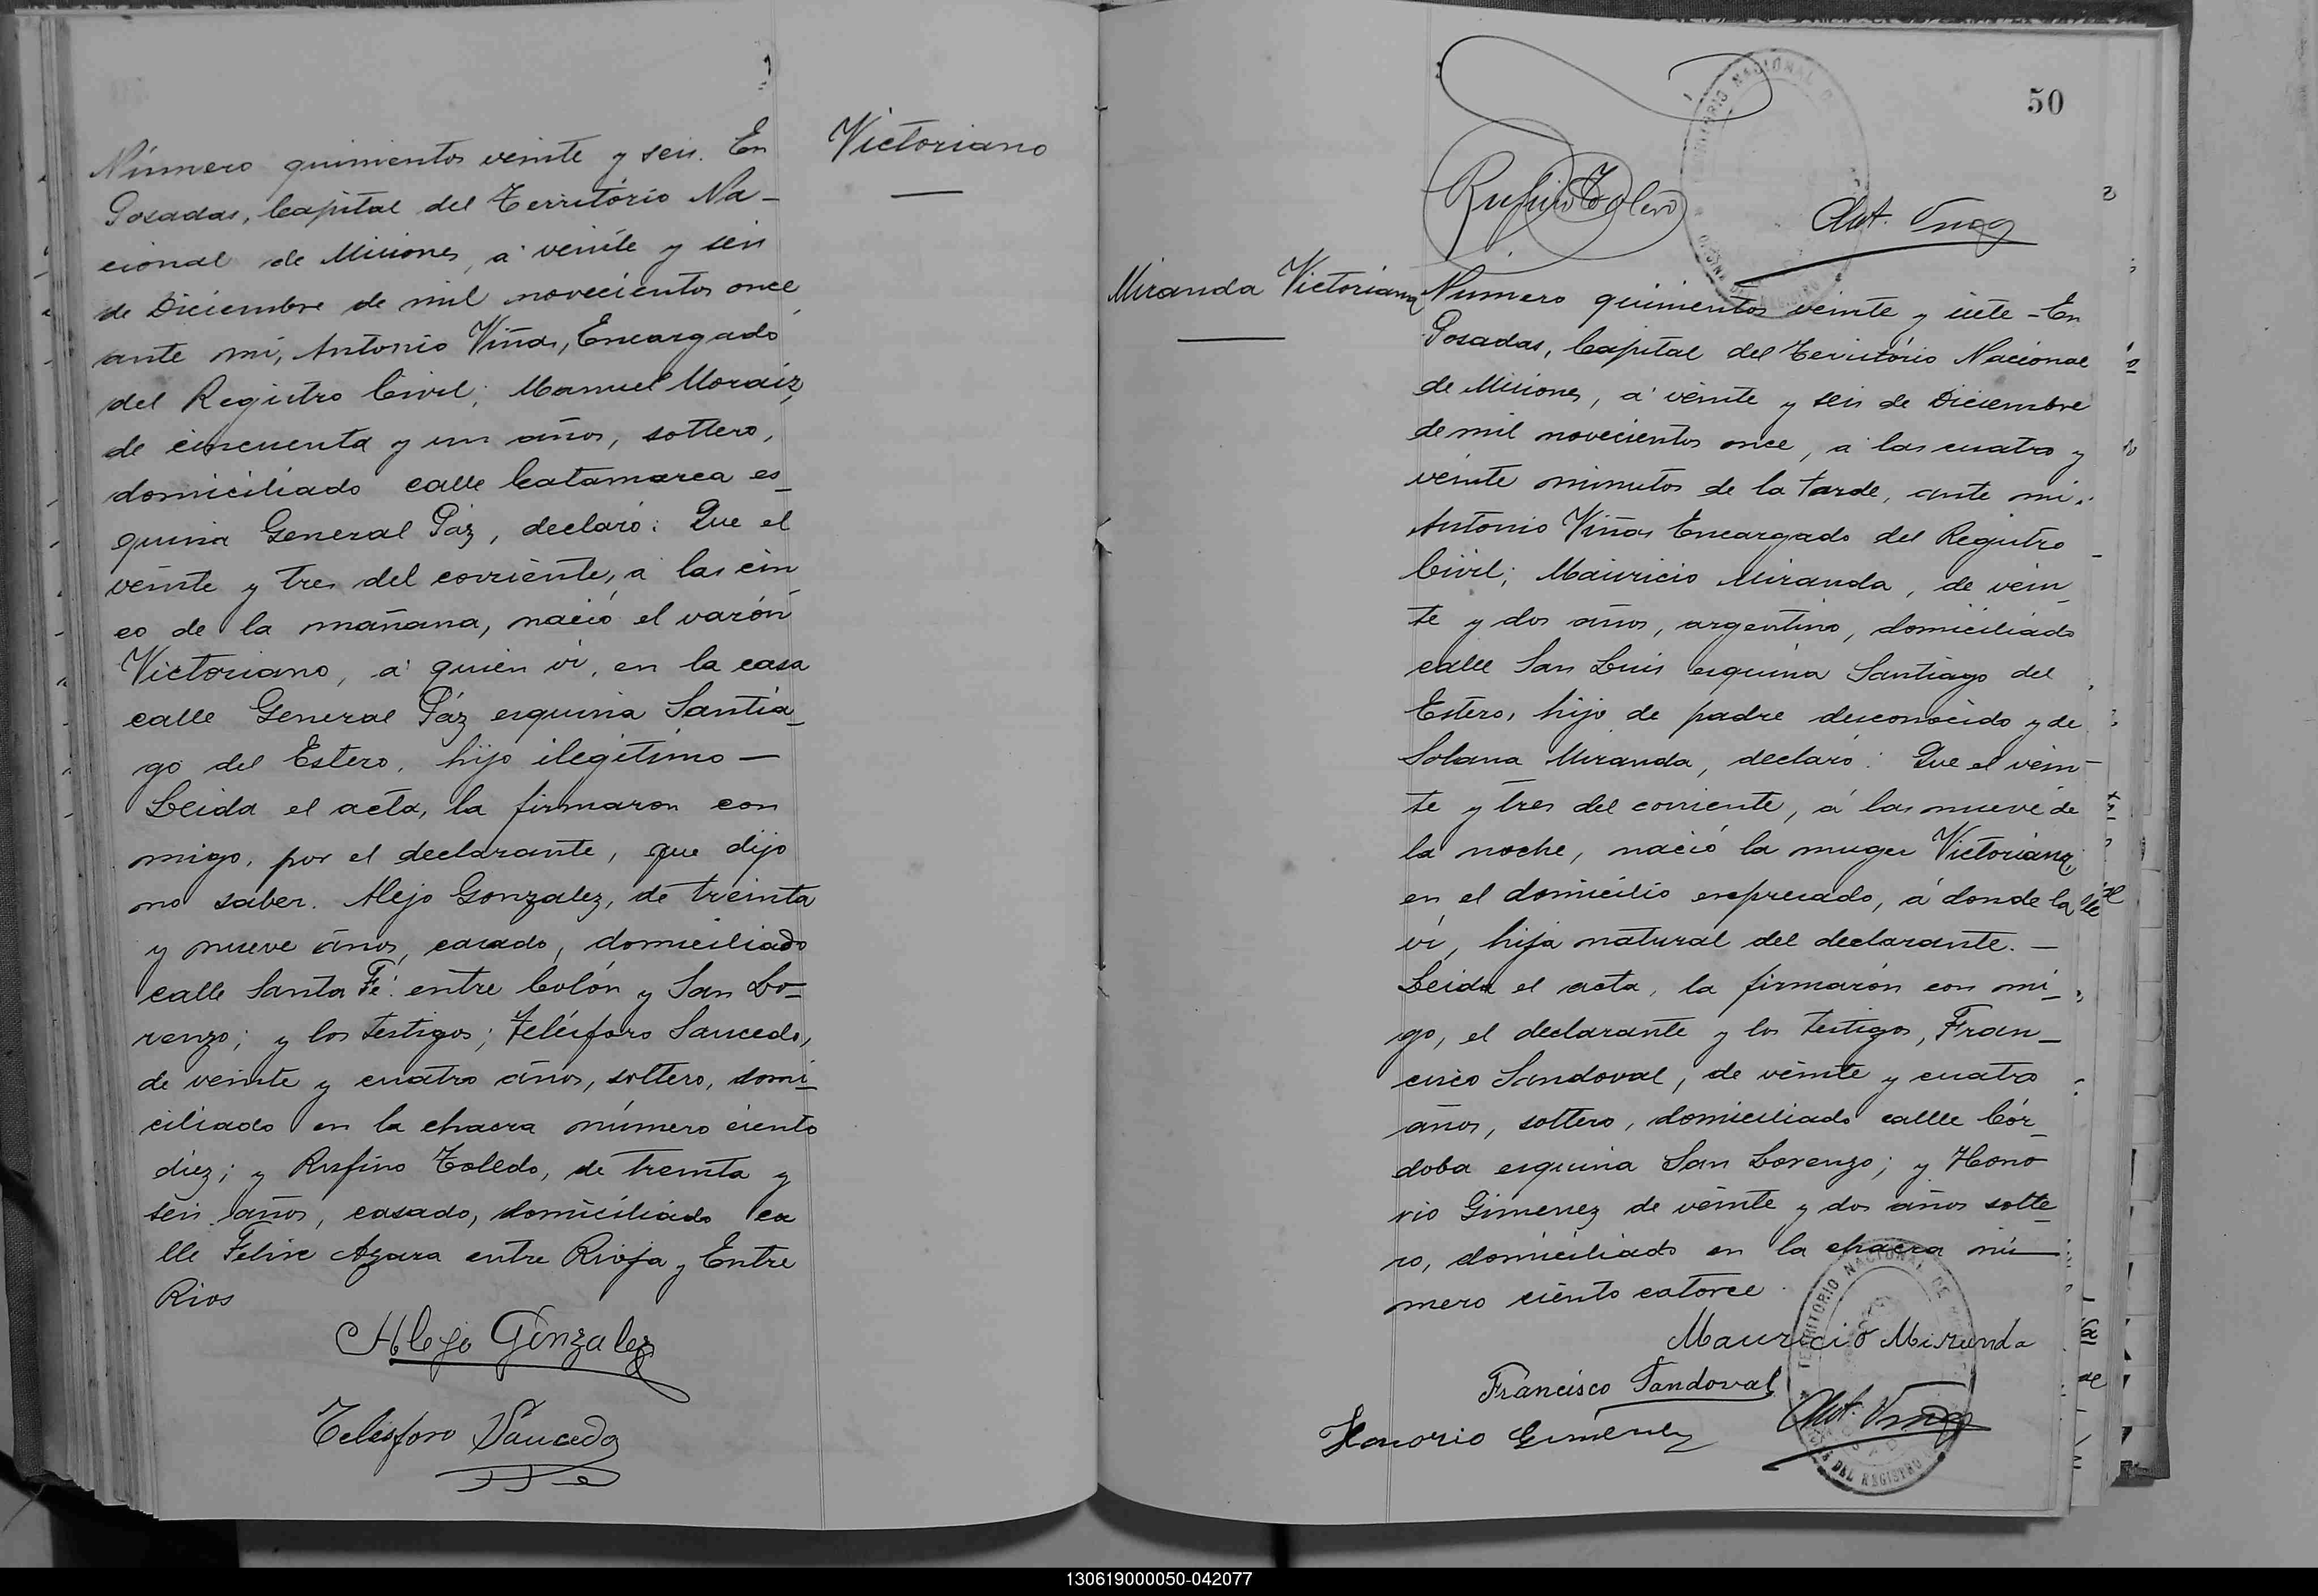 Número quinientos veinte y seis. En
Posadas, Capital del Território Na-
cional de Misiones, á veinte y seis
de Diciembre de mil novecientos once
ante mi, Antonio Viñas, Encargado
del Registro Civil; Manuel Moraiz,
de cincuenta y un años, soltero,
domiciliado calle Catamarca es-
quina General Páz, declaró: Que el
veinte y tres del corriente, á las cin
co de la mañana, nació el varón
Victoriano, á quien vi, en la casa
calle General Páz esquina Santia-
go del Estero, hijo ilegítimo —
Leida el acta, la firmaron con
migo, por el declarante, que dijo
no saber. Alejo Gonzalez, de treinta
y nueve años, casado, domiciliado
calle Santa Fé entre Colón y San Lo-
renzo; y los testigos; Telésforo Saucedo,
de veinte y cuatro años, soltero, domi-
ciliado en la chacra número ciento
diez; y Rufino Toledo, de treinta y
seis años, casado, domiciliado ca
lle Felix Azara entre Rioja y Entre
Rios
Alejo Gonzalez
Telésforo Saucedo
Victoriano
50
TERRITORIO NACIONAL
Rufino Toledo
Ant. Viñas
Miranda Victoriana
Número quinientos veinte y siete - En
Posadas, Capital del Território Nacional
de Misiones, á veinte y seis de Diciembre
de mil novecientos once, á las cuatro y
veinte minutos de la tarde, ante mi.
Antonio Viñas Encargado del Registro
Civil; Mauricio Miranda, de vein
te y dos años, argentino, domiciliado
calle San Luis esquina Santiago del
Estero, hijo de padre desconocido y de
Solana Miranda, declaró: Que el vein-
te y tres del corriente, á las nueve de
la noche, nació la muger Victoriana
en el domicilio expresado, á donde la
vi, hija natural del declarante. —
Leida el acta, la firmarón con mi-
go, el declarante y los testigos, Fran-
cisco Sandoval, de veinte y cuatro
años, soltero, domiciliado callle Cór-
doba esquina San Lorenzo; y Hono
rio Gimenez de veinte y dos años solte-
ro, domiciliado en la chacra nú-
mero ciento catorce
Mauricio Miranda
Francisco Sandoval
Honorio Gimenez
Ant. Viñas
TERRITORIO NACIONAL DE
DEL REGISTRO
130619000050-042077